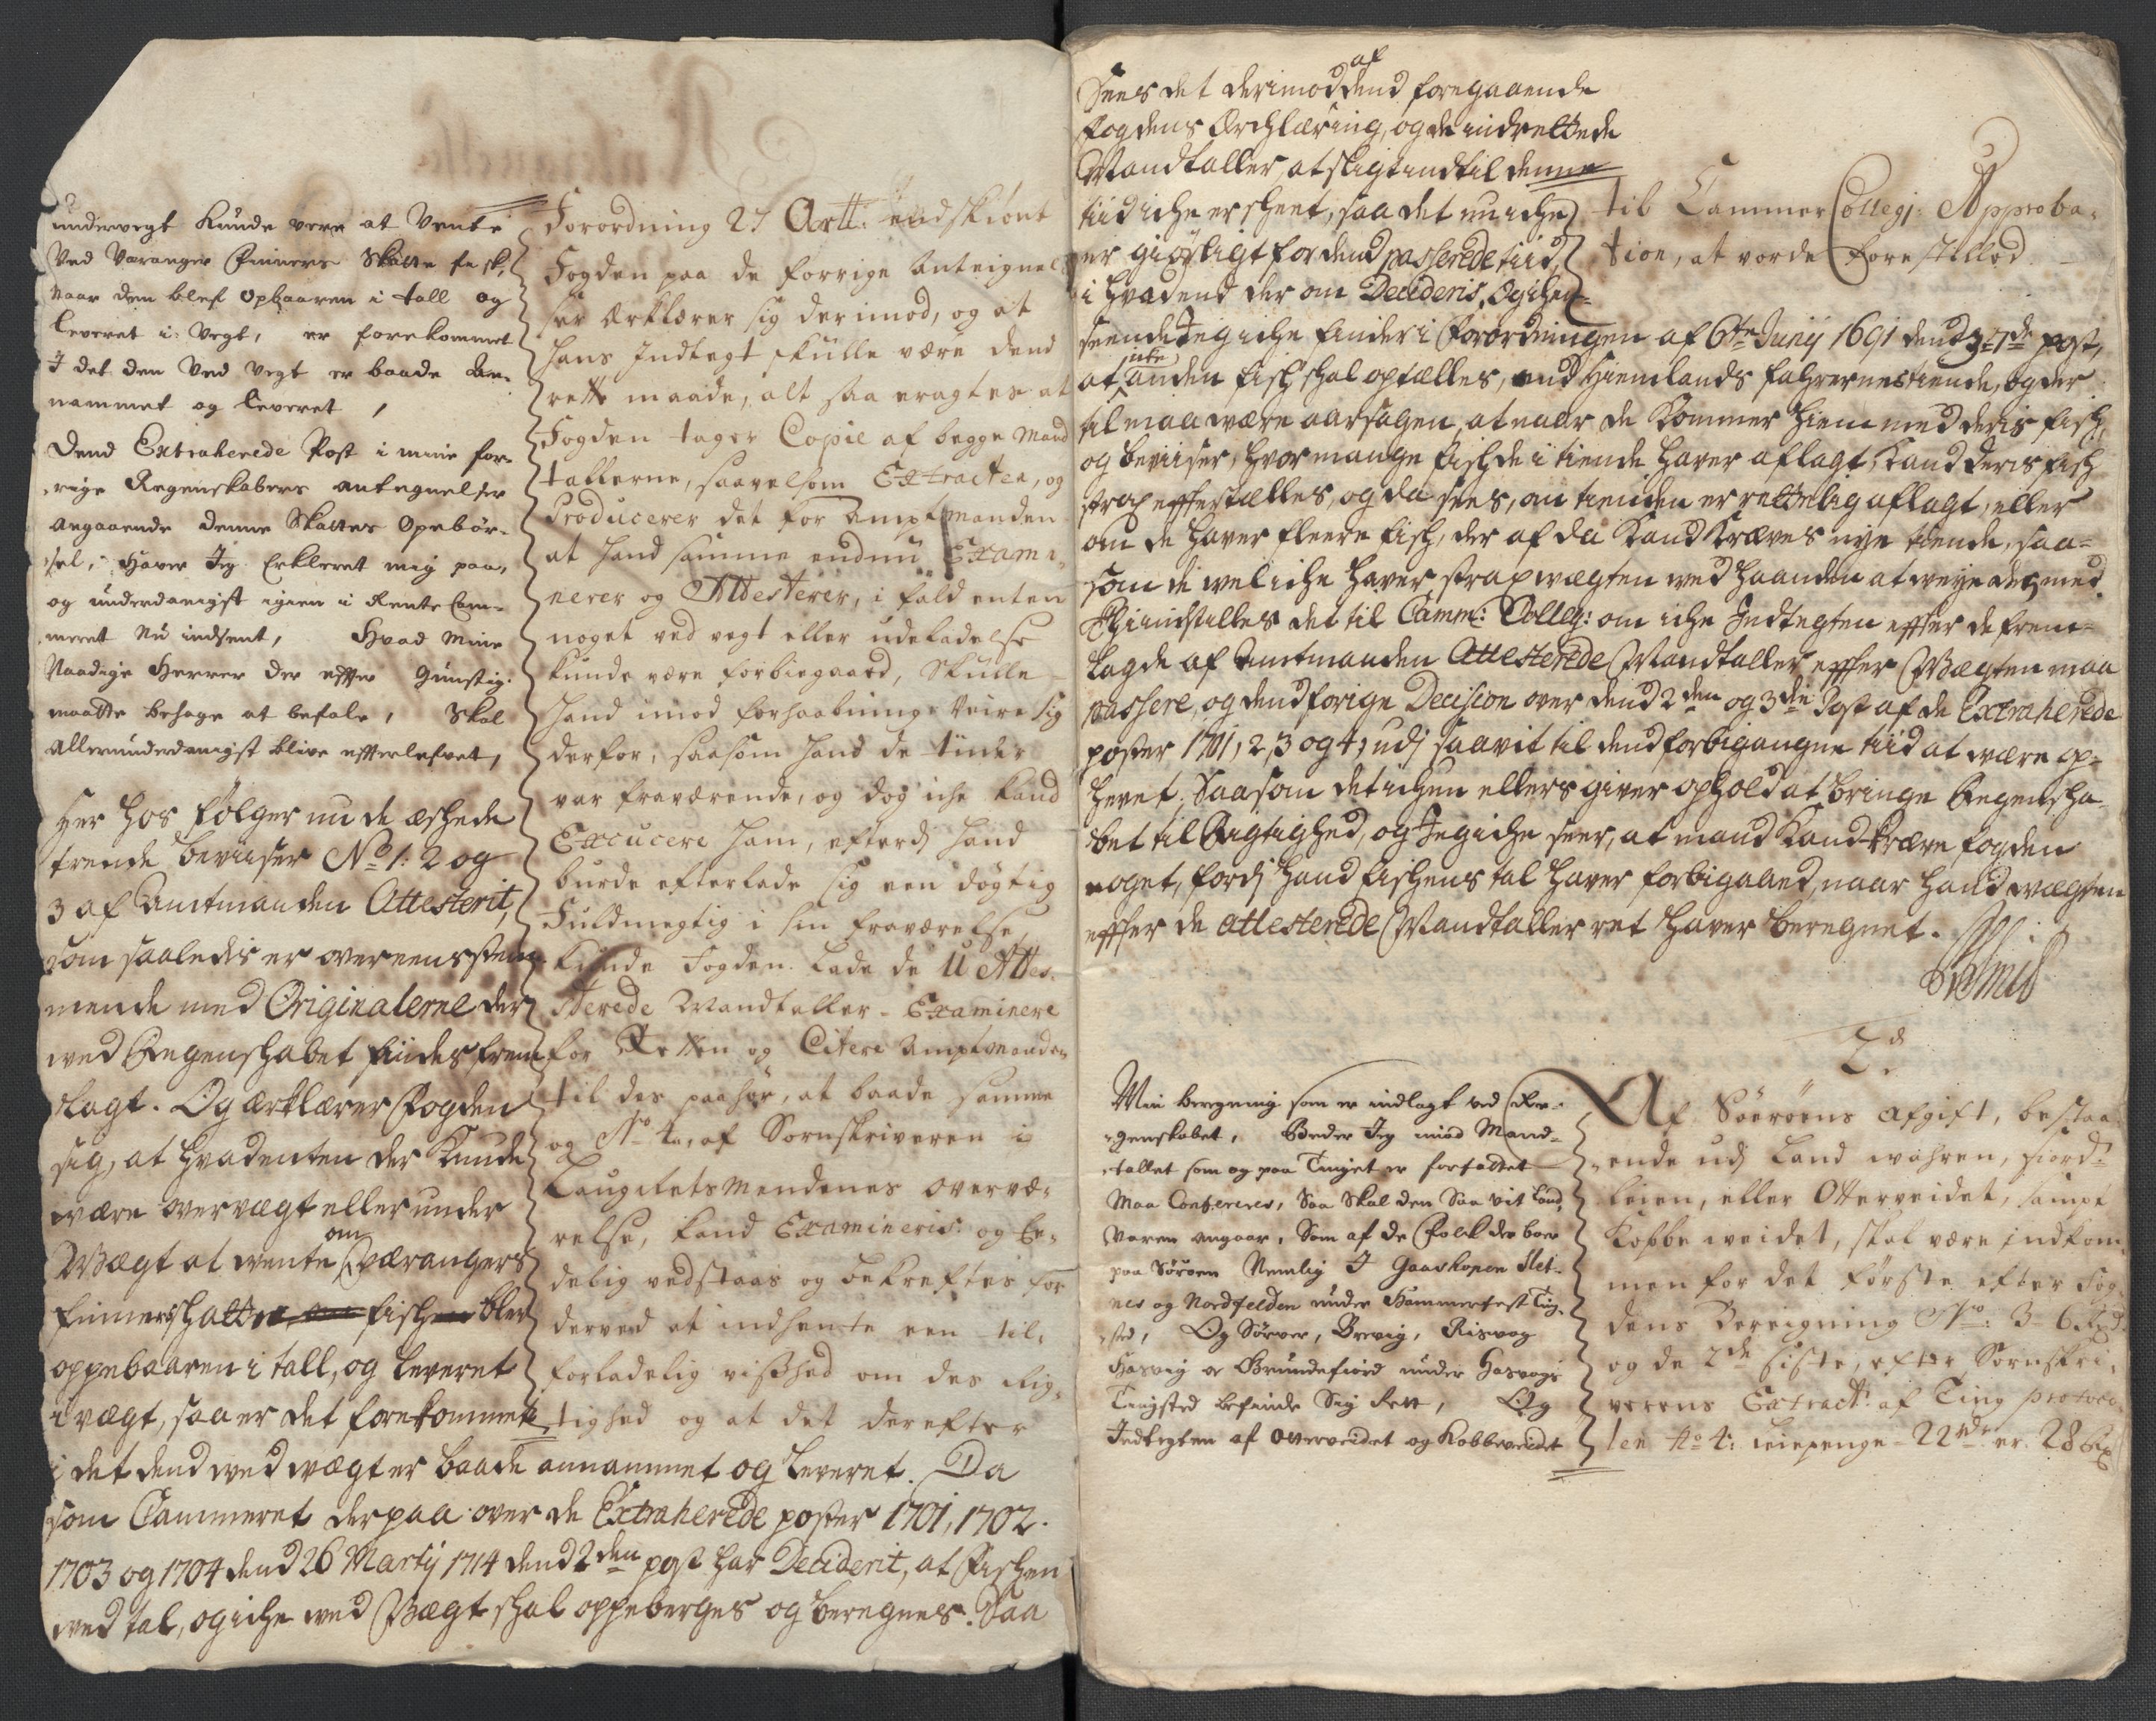 undervegt Kunde vere at Vente i
Ved Varanger Finners Skatte fisk,
Naar den blef Opbaaren i tall og
leveret i Vegt, er forekommet
I det den Ved Vegt er baade an-
nammet og leveret,
Dend Extraherede Post i mine for-
rige Regenskabers antegnelser
angaaende denne Skattes Opebør-
sel, Haver Jeg Erkleret mig paa,
og underdanigst igien i Rente Cam-
meret Nu indsent, Hvad Mine
Naadige Herrer der efter Gunstig.
maatte behage at befale, Skal
Allerunderdanigst blive efterlefvet,
Her hos følger nu de æskede
trende beviiser No 1: 2 og
3 af Amtmanden Attesterit,
som saaledis er overeensstem-
mende med Originalerne der
ved Regenschabet findes frem
lagt. Og ærklærer Fogden
sig, at hvadenten der Kunde
være overvægt eller under
Wægt at vente om Værangers
Finnerschatte fisch blev
oppebaaren i tall, og leveret
i vægt, saa er det forekommet
i det dend ved vægt er baade annammet og leveret. Da
som Cammeret derpaa over de Extraherede poster 1701, 1702.
1703 og 1704 dend 26 Martij 1714 dend 2den post har Deciderit, at Fischen
ved tal, og iche ved Vægt schal oppeberges og beregnes. Saa
Forordning 27 Artt: endskiønt
Fogden paa de forrige Anteignel
ser Ærklærer sig derimod, og at
hans Indtegt skulle være dend
rette maade, alt saa eragtes at
Fogden tager Copie af begge Mand
tallerne, saavelsom Extracten, og
Producerer det for Amptmanden
at hand samme endnu Exami-
nerer og Attesterer, i fald enten
noget ved vegt eller udeladelse
kunde være forbiegaaed, Skulle
hand imod forhaabning Veire sig
derfor, saasom hand de tiider
var fraværende, og dog iche kand
Excucere ham, efterdj hand
burde efterlade sig een døgtig
Fuldmegtig i sin fraværelse,
Kunde Fogden lade de U Attes-
sterede Mandtaller Examinere
for Retten og Citere Amptmanden
til des paahør, at baade samme
og No 4. af Sornskriveren i
Laugretsmendenes overvæ-
relse, kand Examineris og be-
delig vedstaas og bekreftes for
derved at indhente een til-
forladelig visshed om des Rig-
tighed og at det derefter
Sees det derimod af dend foregaaende
Fogdens Ærchlæring, og de indrettede
Mandtaller, at sligt indtil denne
tiid iche er scheet, saa det nu iche
er giørligt for dend passerede tiid,
i hvadend der om Decideris, Og i hen-
til Cammer Collegj: Approba-
tion, at vorde forestilled.
seende Jeg iche finder i Forordningen af 6te Junij 1691 dend 3-7de post,
at inte anden fisch schal optælles, end Hiemlands fahrernes tiende, og der
til maa være aarsagen, at naar de Kommer hiem med deris fisch,
og beviiser, hvor mange fisch de i tiende haver aflagt, kand deris fisch
strax effertælles, og da sees, om tienden er rettelig aflagt, eller
om de haver fleere fisch, der af da kand Kræves nye tiende, saa-
som de vel iche haver strax vægten ved haanden at veye det med.
Thi indstilles det til Camm: Colleg: om iche Indtegten effter de frem-
lagde af Amtmanden Attesterede Mandtaller effter Wægten maa
passere, og dend forige Decision over dend 2den og 3die Post af de Extraherede
poster 1701, 2, 3 og 4, udj saavit til dend forbigangne tiid at være op-
hevet. Saasom det ichun ellers giver ophold at bringe Regenscha-
bet til Rigtighed, og Jeg iche seer, at mand Kand kræve fogden
noget, fordj hand fischens tal haver forbigaaed, naar hand vægten
effter de attesterede Mandtaller ret haver beregnet.
2d.
Min beregning som er indlagt ved Re-
genskabet, Beder Jeg imod Mand-
tallet som og paa Tinget er forfattet
Maa Confereres, Saa Skal den Saa Vit Land
Varen angaar, Som af de Folck der boer
paa Sørøen Nemlig I Gaashopen Slet-
nes og Nordfelden under Hammerfest Ting-
sted, Og Sørver, Brevig, Risvog
Hasvig og Grundefiord under Hasvogs
Tingsted befinde Sig Rett, Og
Indtegten af Otterveidet og Kobbeveidet
Af Søerøens afgift, bestaa-
ende udj Land wahren, fiord-
leien, eller Otterveidet, sampt
Kobbe weidet, skal være indkom-
men for det første efter Fog-
dens Bereigning No: 3 - 6 Rdr
og de 2de siste, efter Sornskri-
verens Extract af Ting protocol-
len No 4: leiepenge - 22 er 28 Rdr